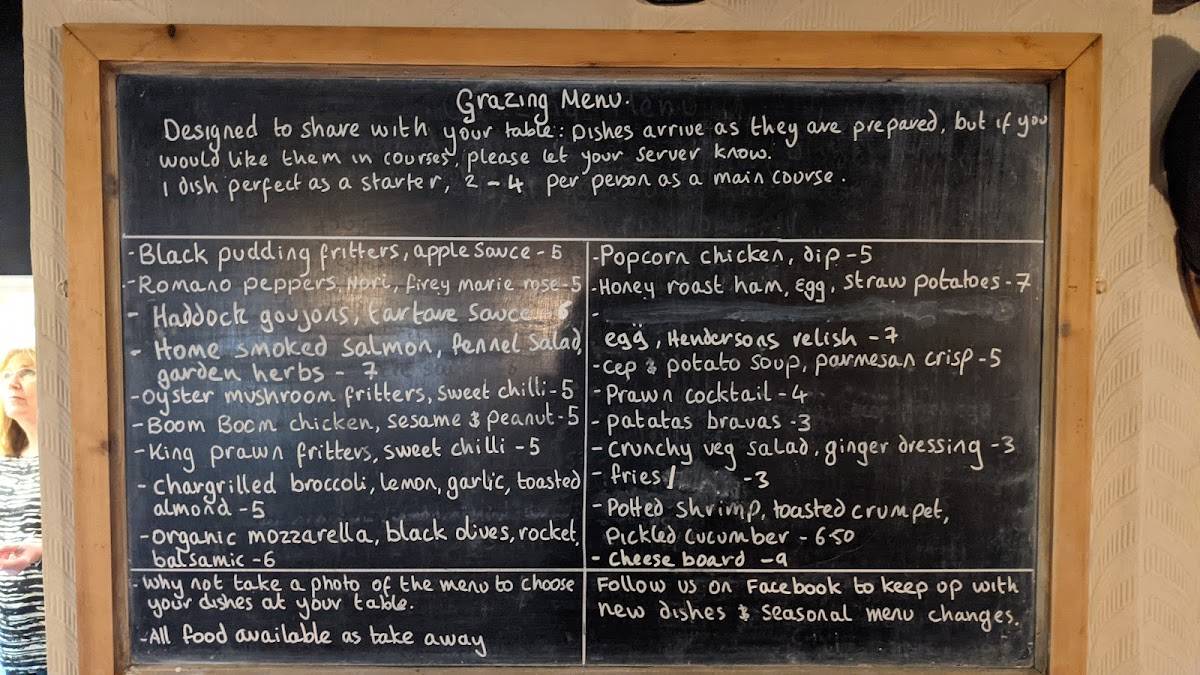 Grazing Menu.
Designed to share with your table: Dishes arrive as they are prepared, but if you
would like them in courses, please let your server know.
1 dish perfect as a starter, 2 - 4 per person as a main course.
- Black pudding fritters, apple sauce - 5
- Romano peppers, Nori, firey marie rose - 5
- Haddock goujons, tartare sauce - 6
- Home smoked salmon, fennel salad,
garden herbs - 7
- Oyster mushroom fritters, sweet chilli - 5
- Boom Boom chicken, sesame & peanut - 5
- King prawn fritters, sweet chilli - 5
- Chargrilled broccoli, lemon, garlic, toasted
almond - 5
- organic mozzarella, black olives, rocket,
balsamic - 6
- Why not take a photo of the menu to choose
your dishes at your table.
- All food available as take away
- Popcorn chicken, dip - 5
- Honey roast ham, egg, straw potatoes - 7
-
egg, Hendersons relish - 7
- Cep & potato soup, parmesan crisp - 5
- Prawn cocktail - 4
- patatas bravas - 3
- Crunchy veg salad, ginger dressing - 3
- fries / - 3
- Potted shrimp, toasted crumpet,
Pickled cucumber - 6.50
- Cheese board - 9
Follow us on Facebook to keep up with
new dishes & seasonal menu changes.